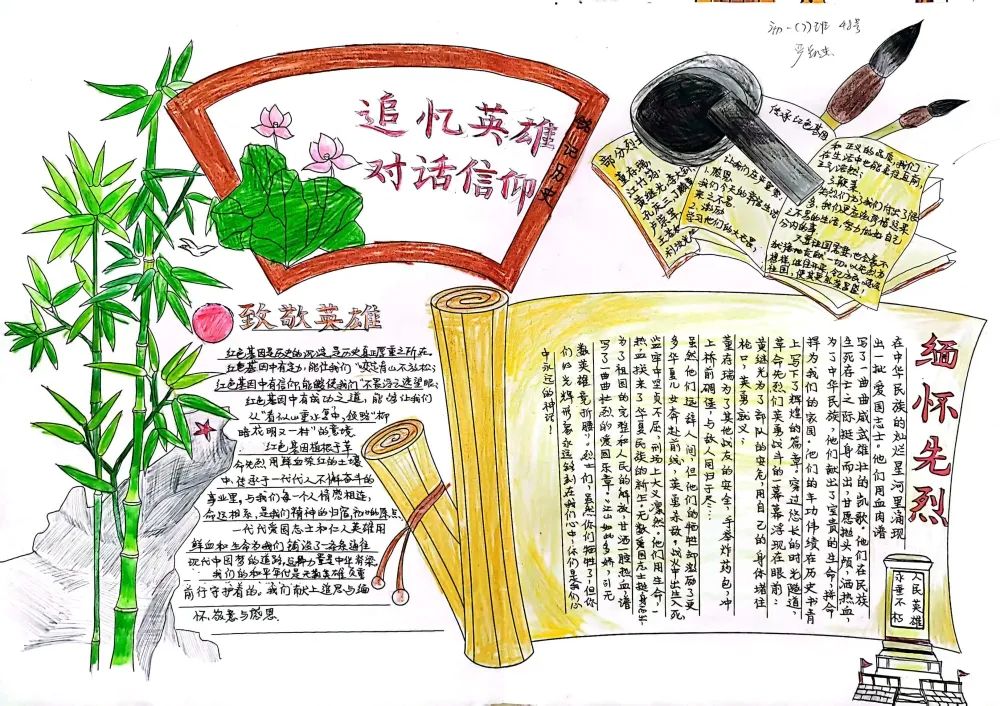 初一(7)班 48号
追忆英雄
对话信仰
铭记历史
传承红色基因
部分烈士
董存瑞
江竹筠
黄继光
让我们在学习里
1.感恩
我们今天的幸福生活
来之不易
2.激励
学习他们的大无畏
和正义的品质,我们
在生活中也能勇往直前
3.敬重
烈士们为了我们付出了很
多,我们更应该珍惜起来
之不易的生活,努力做好自己
分内的事
致敬英雄
红色基因是历史的沉淀,是历史真正厚重之所在。
红色基因中有定力,能让我们“咬定青山不放松;
红色基因中有信仰,能够使我们“不畏浮云遮望眼;
红色基因中有成功之道,能够让我们
从“看似山重水复中,领略“柳
暗花明又一村”的意境
红色基因植根于革
命先烈用鲜血染红的土壤
中,传承于一代代人不懈奋斗的
事业里,与我们每一个人情感相连,
命运相系,是我们精神的归宿,初心的原点
一代代爱国志士和仁人英雄用
鲜血和生命为我们铺设了一条条通往
现代中国梦的道路,
我们的和平年代是无数英雄负重
前行守护着的。我们献上追思与缅
怀,敬意与感恩
缅怀先烈
在中华民族的灿烂星河里涌现
出一批爱国志士。他们用血肉谱
写了一曲曲威武雄壮的凯歌。他们在民族
生死存亡之际挺身而出,甘愿抛头颅,洒热血,
为了中华民族,他们献出了宝贵的生命,拼命
捍卫我们的家园。他们的丰功伟绩在历史书青
上写下了辉煌的篇章。穿过悠长的时光隧道,
革命先烈们英勇战斗的一幕幕浮现在眼前:
黄继光为了部队的安危,用自己的身体堵住
枪口,英勇就义;
董存瑞为了其他战友的安全,手举炸药包,冲
上桥前碉堡,与敌人同归于尽……
虽然他们远辞人间,但他们的牺牲却激励了更
多华夏儿女奔赴前线,英勇杀敌。战火中出生入死,
监牢中坚贞不屈,刑场上大义凛然。他们用生命,一
为了祖国的完整和人民的解放,甘洒一腔热血,谱
写了一曲曲壮烈的爱国乐章。“江山如此多娇,引无
数英雄竞折腰”。烈士们,虽然你们牺牲了,但你
们的光辉形象永远刻在我们心中,你们是我们心
中永远的神话!
人民英雄
永垂不朽